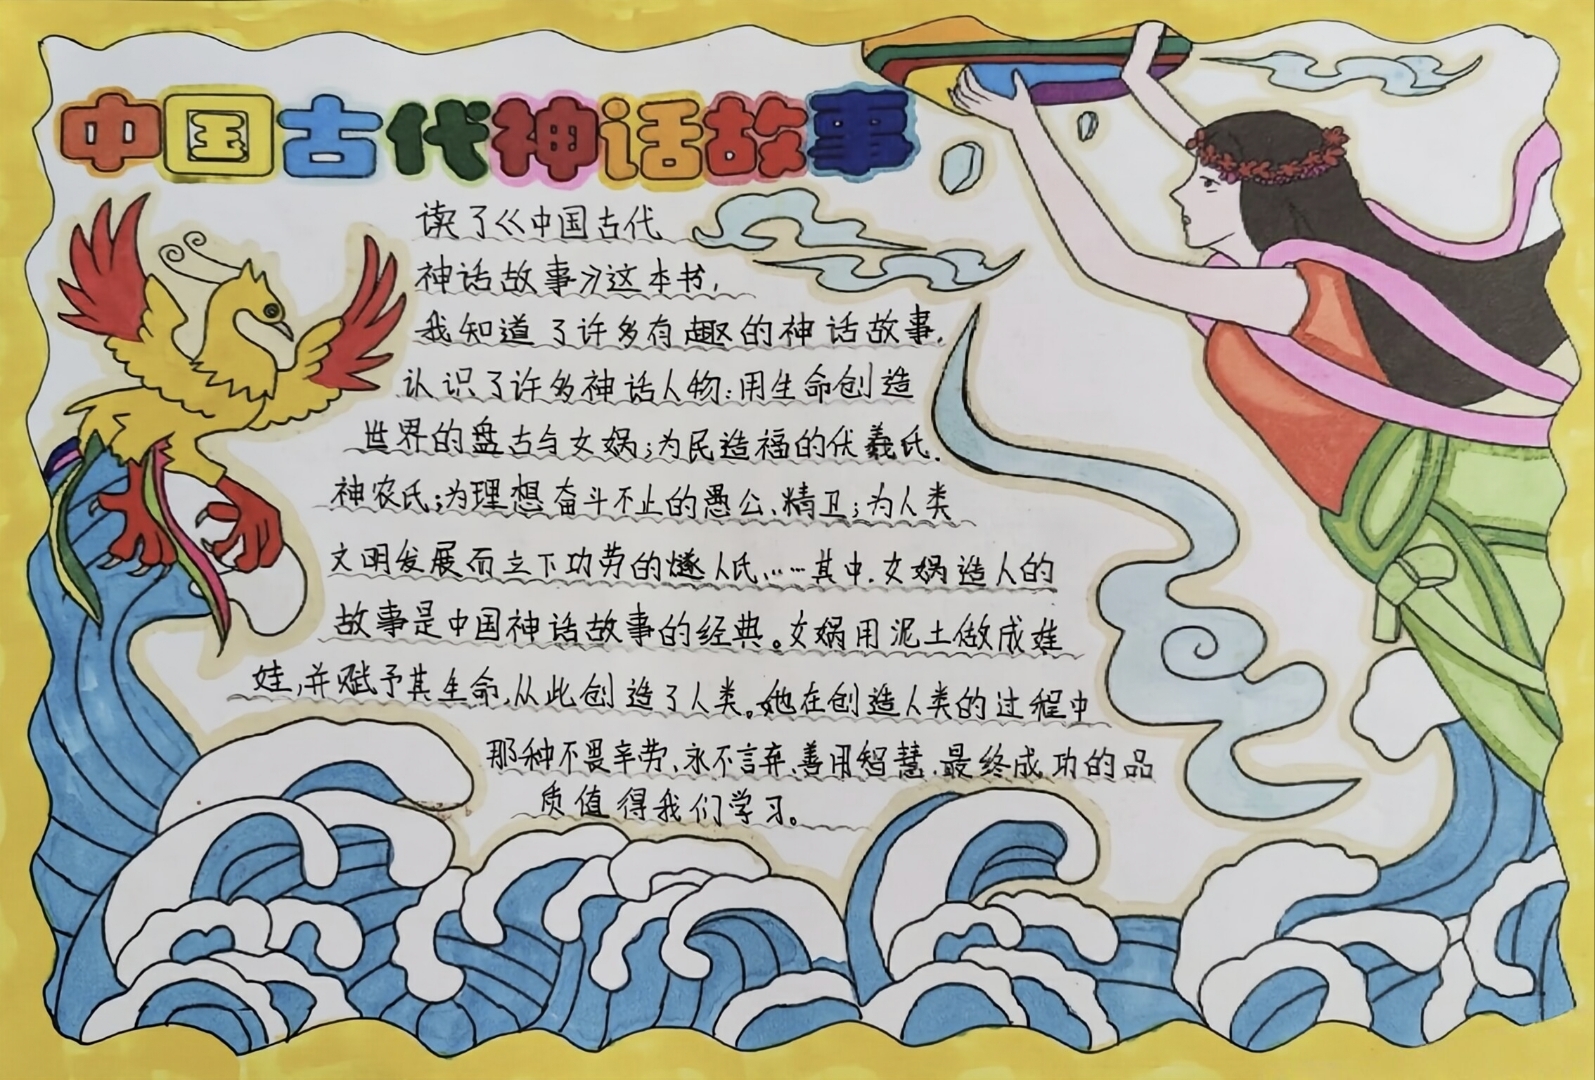 中国古代神话故事
读了《中国古代
神话故事》这本书，
我知道了许多有趣的神话故事，
认识了许多神话人物：用生命创造
世界的盘古与女娲；为民造福的伏羲氏、
神农氏；为理想奋斗不止的愚公、精卫；为人类
文明发展而立下功劳的燧人氏……其中，女娲造人的
故事是中国神话故事的经典。女娲用泥土做成娃
娃，并赋予其生命，从此创造了人类。她在创造人类的过程中
那种不畏辛劳、永不言弃、善用智慧、最终成功的品
质值得我们学习。